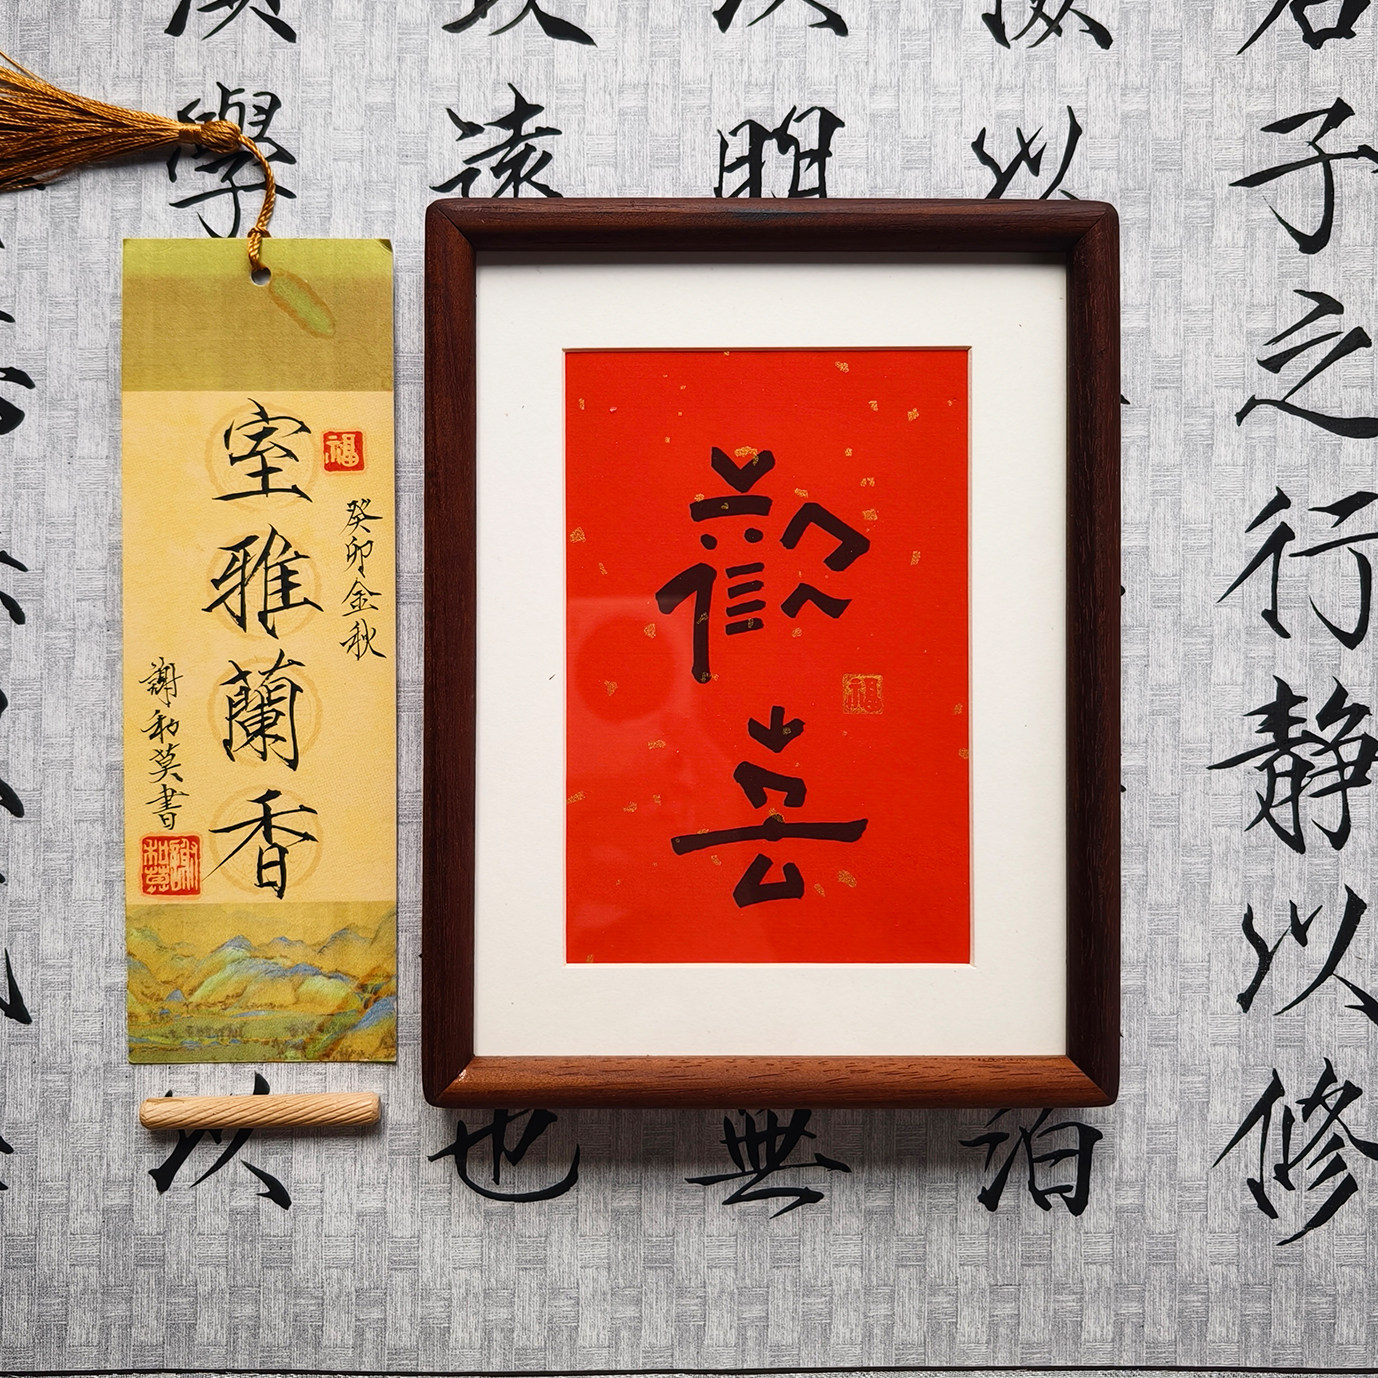 君子之行靜以修
以
泊
明
無
遠
也
學
以
歡喜
福
福
癸卯金秋
室雅蘭香
謝和莫書